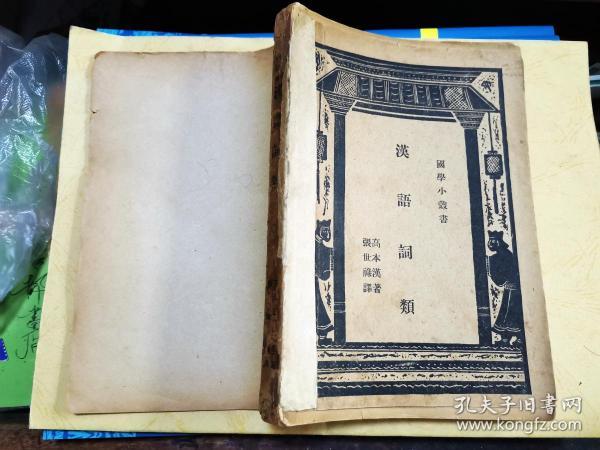 國學小叢書
漢語詞類
高本漢著
張世祿譯
孔夫子旧书网
www.kongfz.com